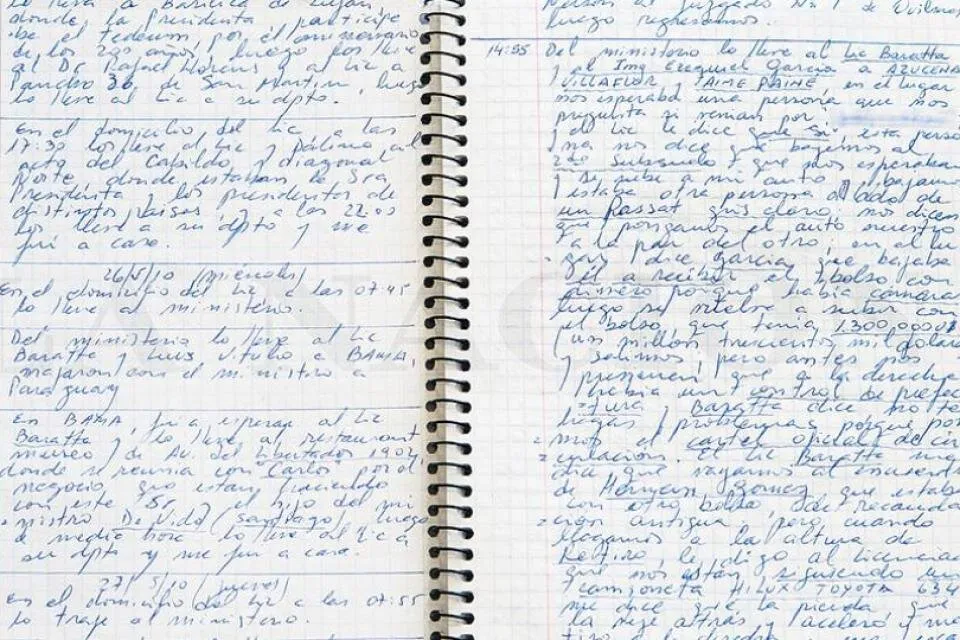 lo llevo a Basílica de Luján
donde la Presidenta participe
de el tedeum por el aniversario
de los 200 años, luego los llevé
al Dr. Rafael y al Lic a
Pancho 36, de San Martín, luego
lo llevé al Lic a su dpto.
En el domicilio del Lic, a las
17:30 los llevé al Lic y al
acto del Cabildo y diagonal
Norte donde estaban la Sra
Presidenta y los presidentes de
distintos países y a las 22:00
los llevé a su dpto y me
fui a casa.
26/5/10 (miércoles)
En el domicilio del Lic a las 07:45
lo llevé al ministerio.
Del ministerio lo llevé al Lic
Baratta y Luis Vitulio a BAMA,
viajaron con el ministro a
Paraguay
En BAMA, fui a esperar al Lic
Baratta y lo llevé al restaurant
museo, de Av. del Libertador 1902,
donde se reunía con "Carlos" por el
negocio que estan haciendo
con este Sr y el hijo del mi
nistro De Vido (Santiago) luego
de media hora lo llevé al Lic a
su dpto y me fui a casa.
27/5/10 (jueves)
En el domicilio del Lic a las 07:55
lo traje al ministerio.
al juzgado Nº 1 de Quilmes
luego regresamos.
14:55 Del ministerio lo llevé al Lic Baratta
y al Ing Ezequiel García a AZUCENA
VILLAFLOR, en el lugar
nos esperaba una persona que nos
pregunta si venían por
y el Lic le dice que sí, esta perso
na nos dice que bajemos al
2do Subsuelo y que nos esperaban
y se sube a mi auto y bajamos
y estaba otra persona al lado de
un Passat gris claro, nos dicen
que pongamos el auto nuestro
a la par del otro, en el lu
gar dice García que bajaba
él a recibir el bolso con
dinero porque había cámaras
luego se vuelve a subir con
el bolso que tenía 1.300.000U$
(un millón trescientos mil dolares
y salimos pero antes nos
que a la derecha
había un control de prefec
tura y Baratta dice no te
hagas problemas porque pone
mos el cartel oficial de cir
culación. El Lic Baratta me
dice que vayamos al encuentro
de Hernan Gomez que estaba
con otro bolso de recauda
ción antigua, pero cuando
llegamos a la altura de
Retiro, le digo al licenciado
que nos están siguiendo una
camioneta HILUX TOYOTA 634
me dice que la pierda, que
la deje atrás y aceleró y me
tiro a la derecha